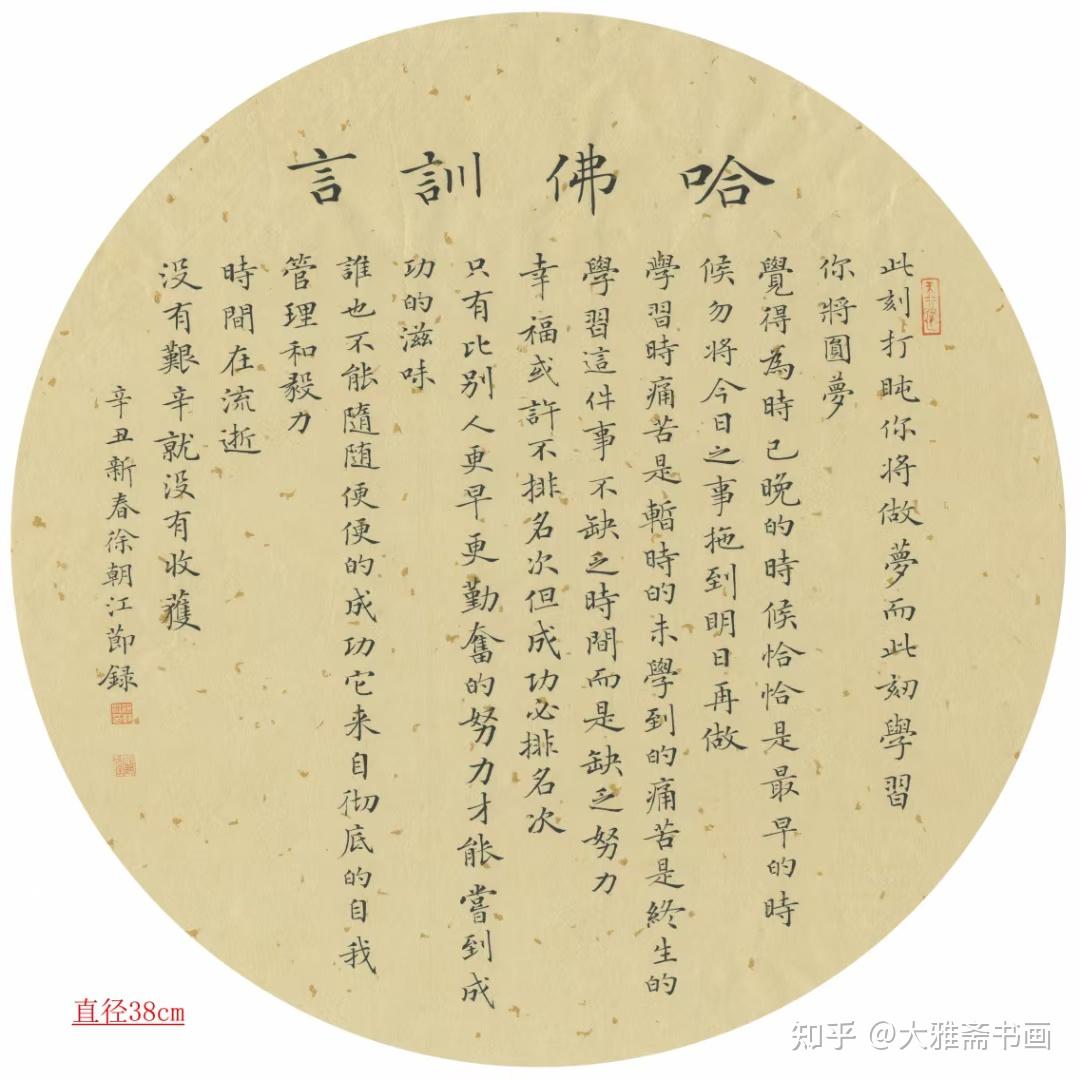 哈佛訓言
此刻打盹你将做夢而此刻學習
你將圓夢
覺得為時已晚的時候恰恰是最早的時
候勿將今日之事拖到明日再做
學習時痛苦是暫時的未學到的痛苦是終生的
學習這件事不缺乏時間而是缺乏努力
幸福或許不排名次但成功必排名次
只有比别人更早更勤奮的努力才能嘗到成
功的滋味
誰也不能隨隨便便的成功它来自彻底的自我
管理和毅力
時間在流逝
没有艱辛就没有收獲
辛丑新春徐朝江節録
直径38cm
知乎 @大雅斋书画